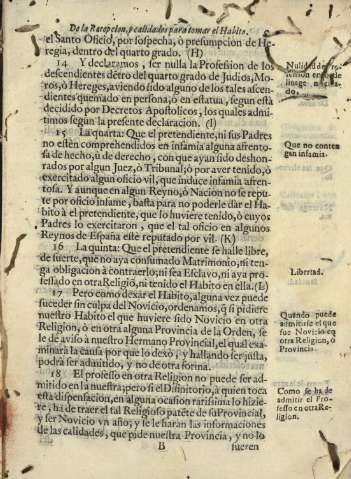 De la Recepcion, y calidades para tomar el Habito.
el Santo Oficio, por sospecha, ò presumpcion de He-
regia, dentro del quarto grado. (H)
14 Y declaramos, ser nulla la Profession de los
descendientes dẽtro del quarto grado de Judios, Mo-
ros, ò Hereges, aviendo sido alguno de los tales ascen-
dientes quemado en persona, ò en estatua, segun està
decidido por Decretos Apostolicos, los quales admi-
timos segun la presente declaracion. (I)
15 La quarta: Que el pretendiente, ni sus Padres
no estèn comprehendidos en infamia alguna afrento-
sa de hecho, ù de derecho, con que ayan sido deshon-
rados por algun Juez, ò Tribunal; ò por aver tenido, ò
exercitado algun oficio vil, que induce infamia afren-
tosa. Y aunque en algun Reyno, ò Nacion no se repu-
te por oficio infame, basta para no poderle dàr el Habi-
to à el pretendiente, que lo huviere tenido, ò cuyos
Padres lo exercitaron, que el tal oficio en algunos
Reynos de España estè reputado por vil. (K)
16 La quinta: Que el pretendiente se halle libre,
de suerte, que no aya consumado Matrimonio, ni ten-
ga obligacion à contraerlo; ni sea Esclavo, ni aya pro-
fessado en otra Religiõ, ni tenido el Habito en ella. (L)
17 Pero como dexar el Habito, alguna vez puede
suceder sin culpa del Novicio, ordenamos, q̃ si pidiere
nuestro Habito el que huviere sido Novicio en otra
Religion, ò en otra alguna Provincia de la Orden, se
le dè aviso à nuestro Hermano Provincial, el qual exa-
minarà la causa por que lo dexò; y hallando ser justa,
podrà ser admitido, y no de otra forma.
18 El professo en otra Religion no puede ser ad-
mitido en la nuestra; pero si el Difinitorio, à quien toca
esta dispensacion, en alguna ocasion rarissima lo hizie-
re, ha de traer el tal Religioso patẽte de su Provincial,
y ser Novicio vn año; y se le haràn las informaciones
de las calidades, que pide nuestra Provincia, y no lo
B fueren
Nulidad de
Que no conten
gan infamia.
Libertad.
Quando puede
admitirse el que
fue Novicio en
otra Religion, ò
Provincia.
Como se ha de
admitir el Pro-
fesso en otra Re-
ligion.